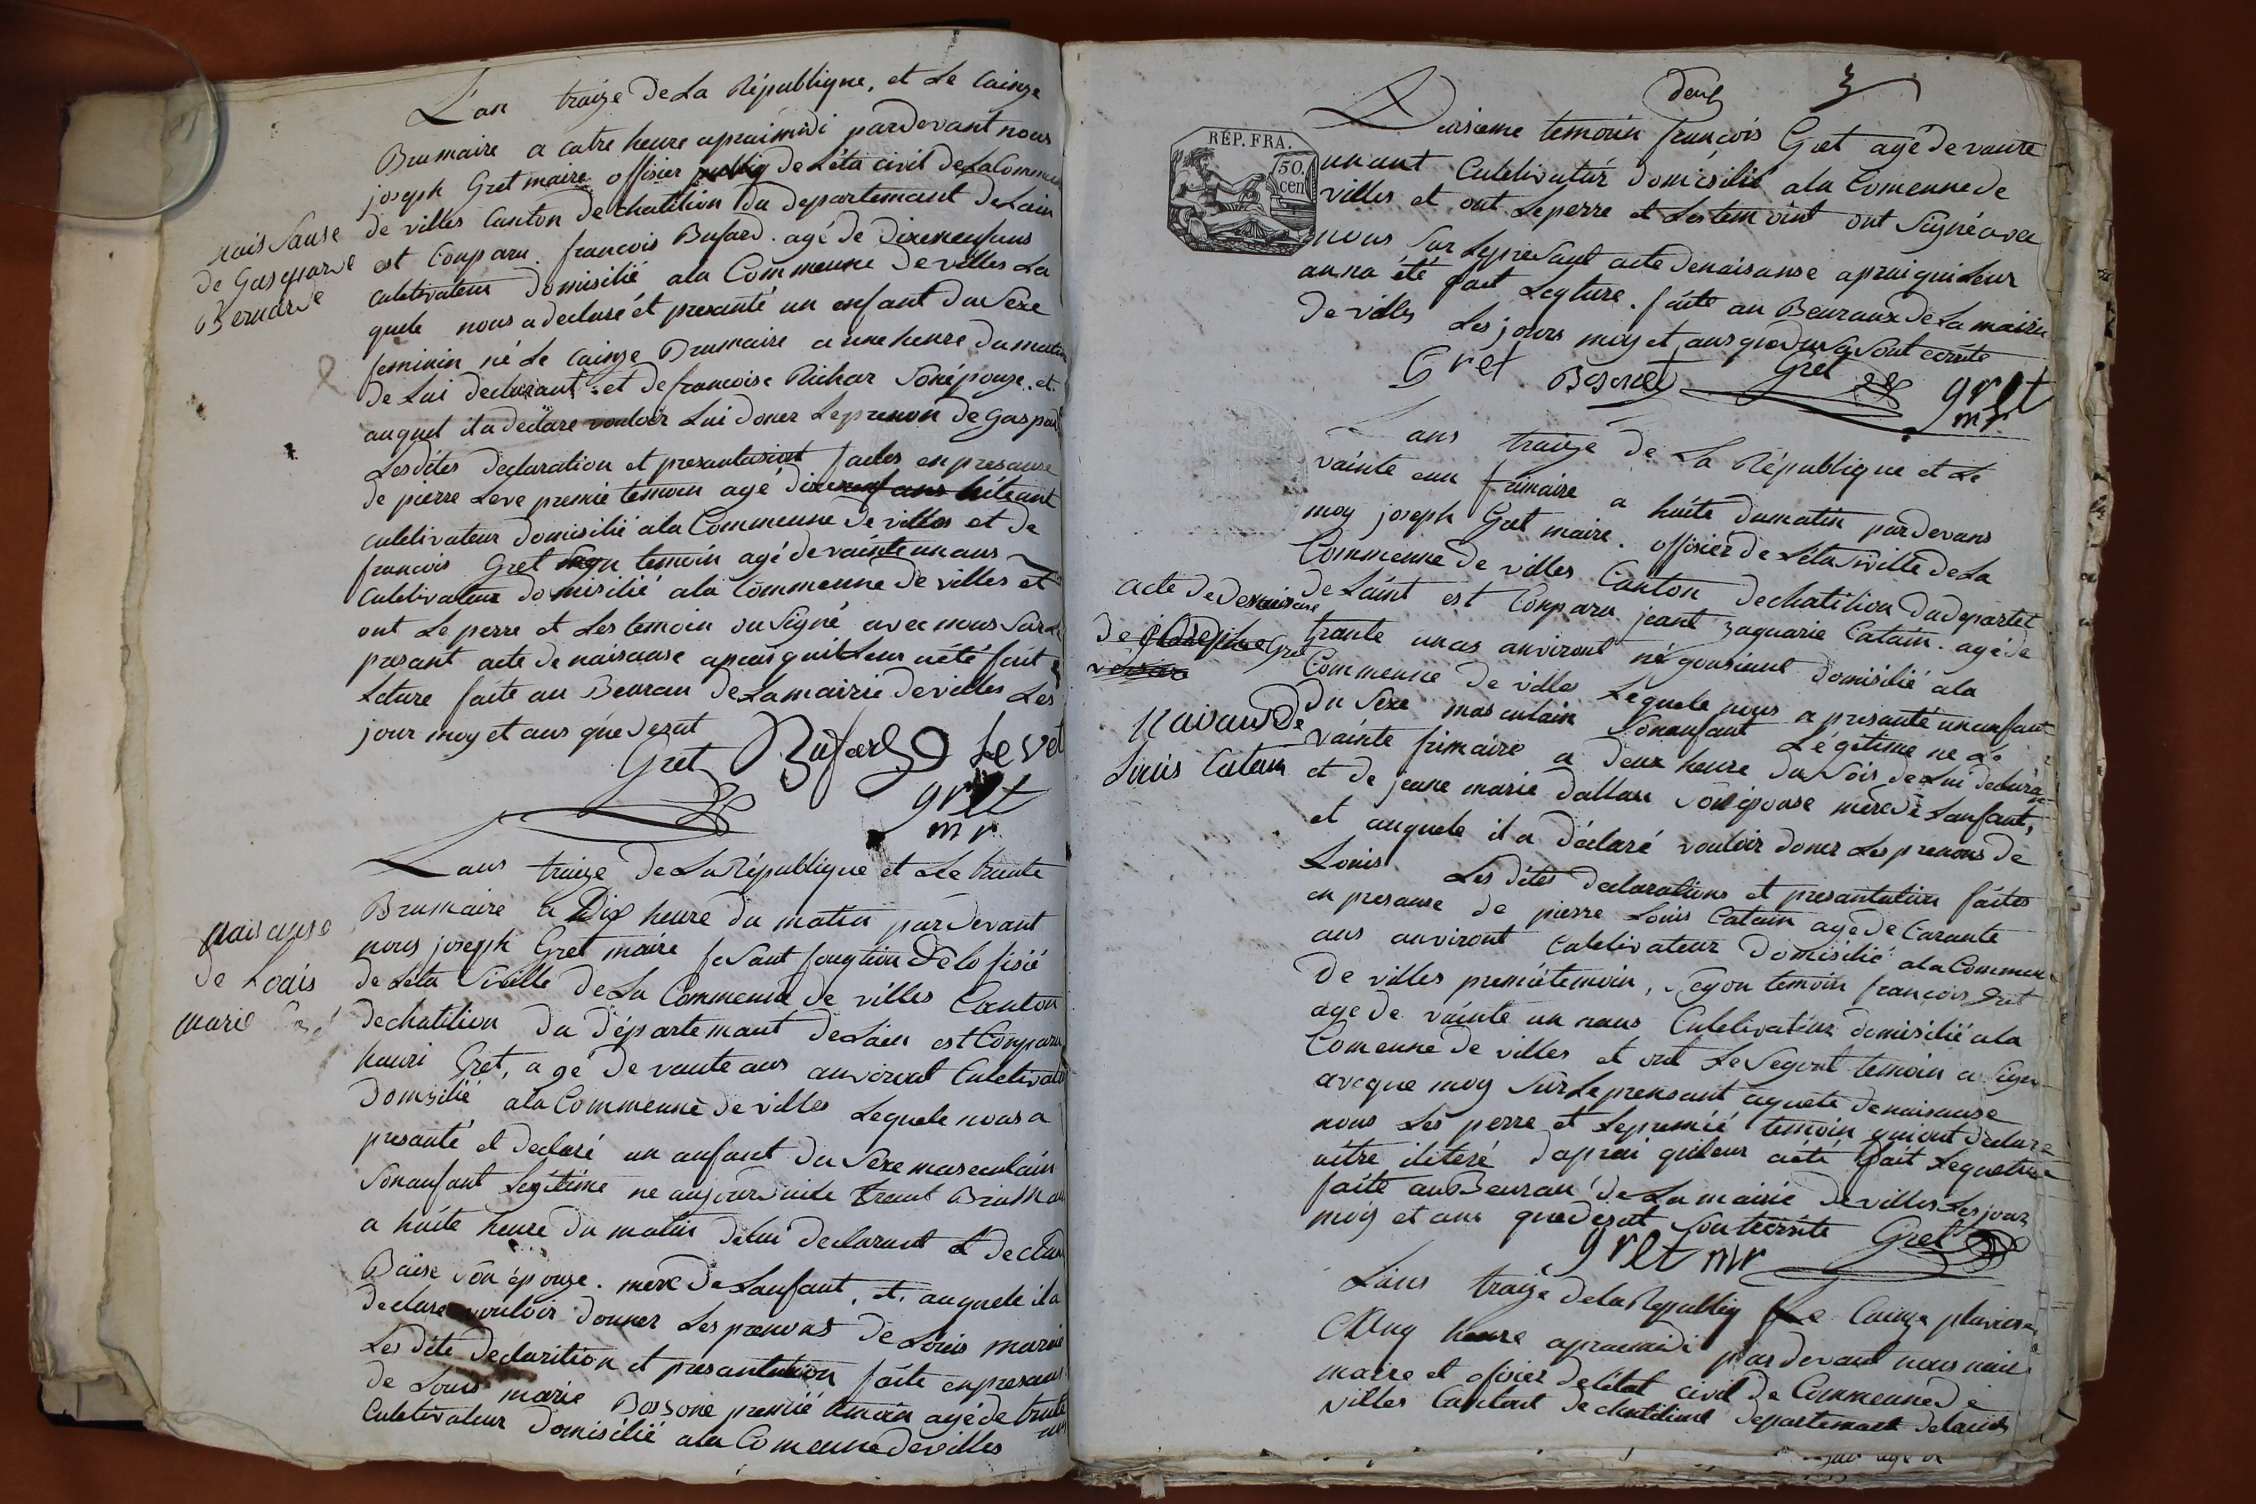 L'an traize de La République, et Le Cainze
Brumaire a catre heure apraimidi pardevant nous
joseph Gret maire offisier de Léta civil de La Commeune
de villes Canton de chatilion du departemant de Lain
est Conparu francois Bufard agé de Dixeneufans
culetivateur domisilié ala Commeune de villes La
quele nous a declaré et presanté un enfant du Sexe
feminin né Le Cainze Brumaire a une heure du matin
de Lui declarant et de francoise Richar Son épouze et
auquel il a declare vouloir Lui doner Le prenon de Gaspar
Les dites declaration et presantasiont faites en presanse
de pierre Leve premie temoin agé dixeneuf ans huite ant
culetivateur domisilié ala Commeune de villes et de
francois Gret temoin agé de vainte un ans
Culetivateur domisilié ala Commeune de villes et
ont Le perre et Les temoin ou Signé avec nous Sur Le
presant acte de naisanse apraisquil Leur aété fait
Leture faite au Beurau de La mairie de villes Les
jour moy et ans que desut
Gret Bufard Levet
gret
mr
naisSanse
de Gasparde
Bernarde
Lans traize de La République et Le trante
Brumaire a Dix heure du matin par devant
nous joseph Gret maire feSant fongtion de lofisié
de Léta Siville de La Commeune de villes Canton
dechatilion du départemant de Lain est Conparu
henri Gret, agé de vante ans anviront Culetivateur
Domsilié ala Commeune de villes Lequele nous a
presanté et declaré un anfant du Sexe masculain
Sonanfant Legitime ne aujourduite trant Brumaire
a huite heure du matin delui declarant et de
Son épouze. mere de Lanfant, et auquele il a
declare vouloir donner Les prenons de Louis marie
Les dite declarition et presantation faite enpresans
de Louis marie premié temoin agé de trante ans
Culetivateur domisilié ala Comeune de villes
naisanse
de Louis
marie
deux 3
RÉP. FRA.
50.
cen
Deusieme temoin françois Gret agé de vainte
unant Culetivatur domisilié ala Comeunne de
villes et ont Le perre et Les temoint ont Signé avec
nous Sur Le preSant acte denaisanse aprai qui Leur
anna été fait Legture. faite au Beuraux de La mairie
de villes Les jours moy et ans que dusu Sont ecrite
Gret Gret gret
mr
Lans traize de La République et Le
vainte eun frimaire a huite dumatin pardevans
moy joseph Gret maire. offisier de Léta Siville de La
Commeune de villes Canton dechatilion du departet
de Laint est Conparu jeant Zaquarie Catain. agé de
trante un as anviront négousiant domisilié ala
Commeune de villes Lequele nous a presanté unanfant
du Sexe masculain Sonanfant Légitime ne Le
vainte frimaire a deux heure du Soir de Lui declara
et de jeane marie dallau Son épouse mere de Lanfant,
et auquele il a déclaré vouloir doner Les prenons de
Louis Les dites declarations et presantation faites
en presanse de pierre Louis Catain agé de Carante
ans anviront Culetivateur domisilié ala Commeune
de villes premiétemoin, Segon temoin françois gret
age de vainte un nans Culetivateur domisilié ala
Comeunne de villes et ont Le Segont temoin a Signé
avecque moy Sur Le prensant aquete denaisanse
nous Les perre et Le premié temoin quiont declaré
aitre iliteré daprai quileur aété fait Lequeture
faite au Beurau de La mairie de villes Les jour
moy et ans quedesut Sont ecrite Gret
gret mr
acte de de naisanse
de josephe Gret
Louis Catain
Lans traize de la Republiq Le Cainze pluviose
heure apraimidi par devant nous
maire et ofisier de l'état civil de Commeune de
villes Cantont dechatiliont departemant delaint